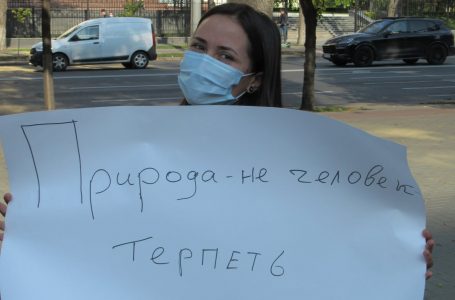 Природа-не человек
Терпеть